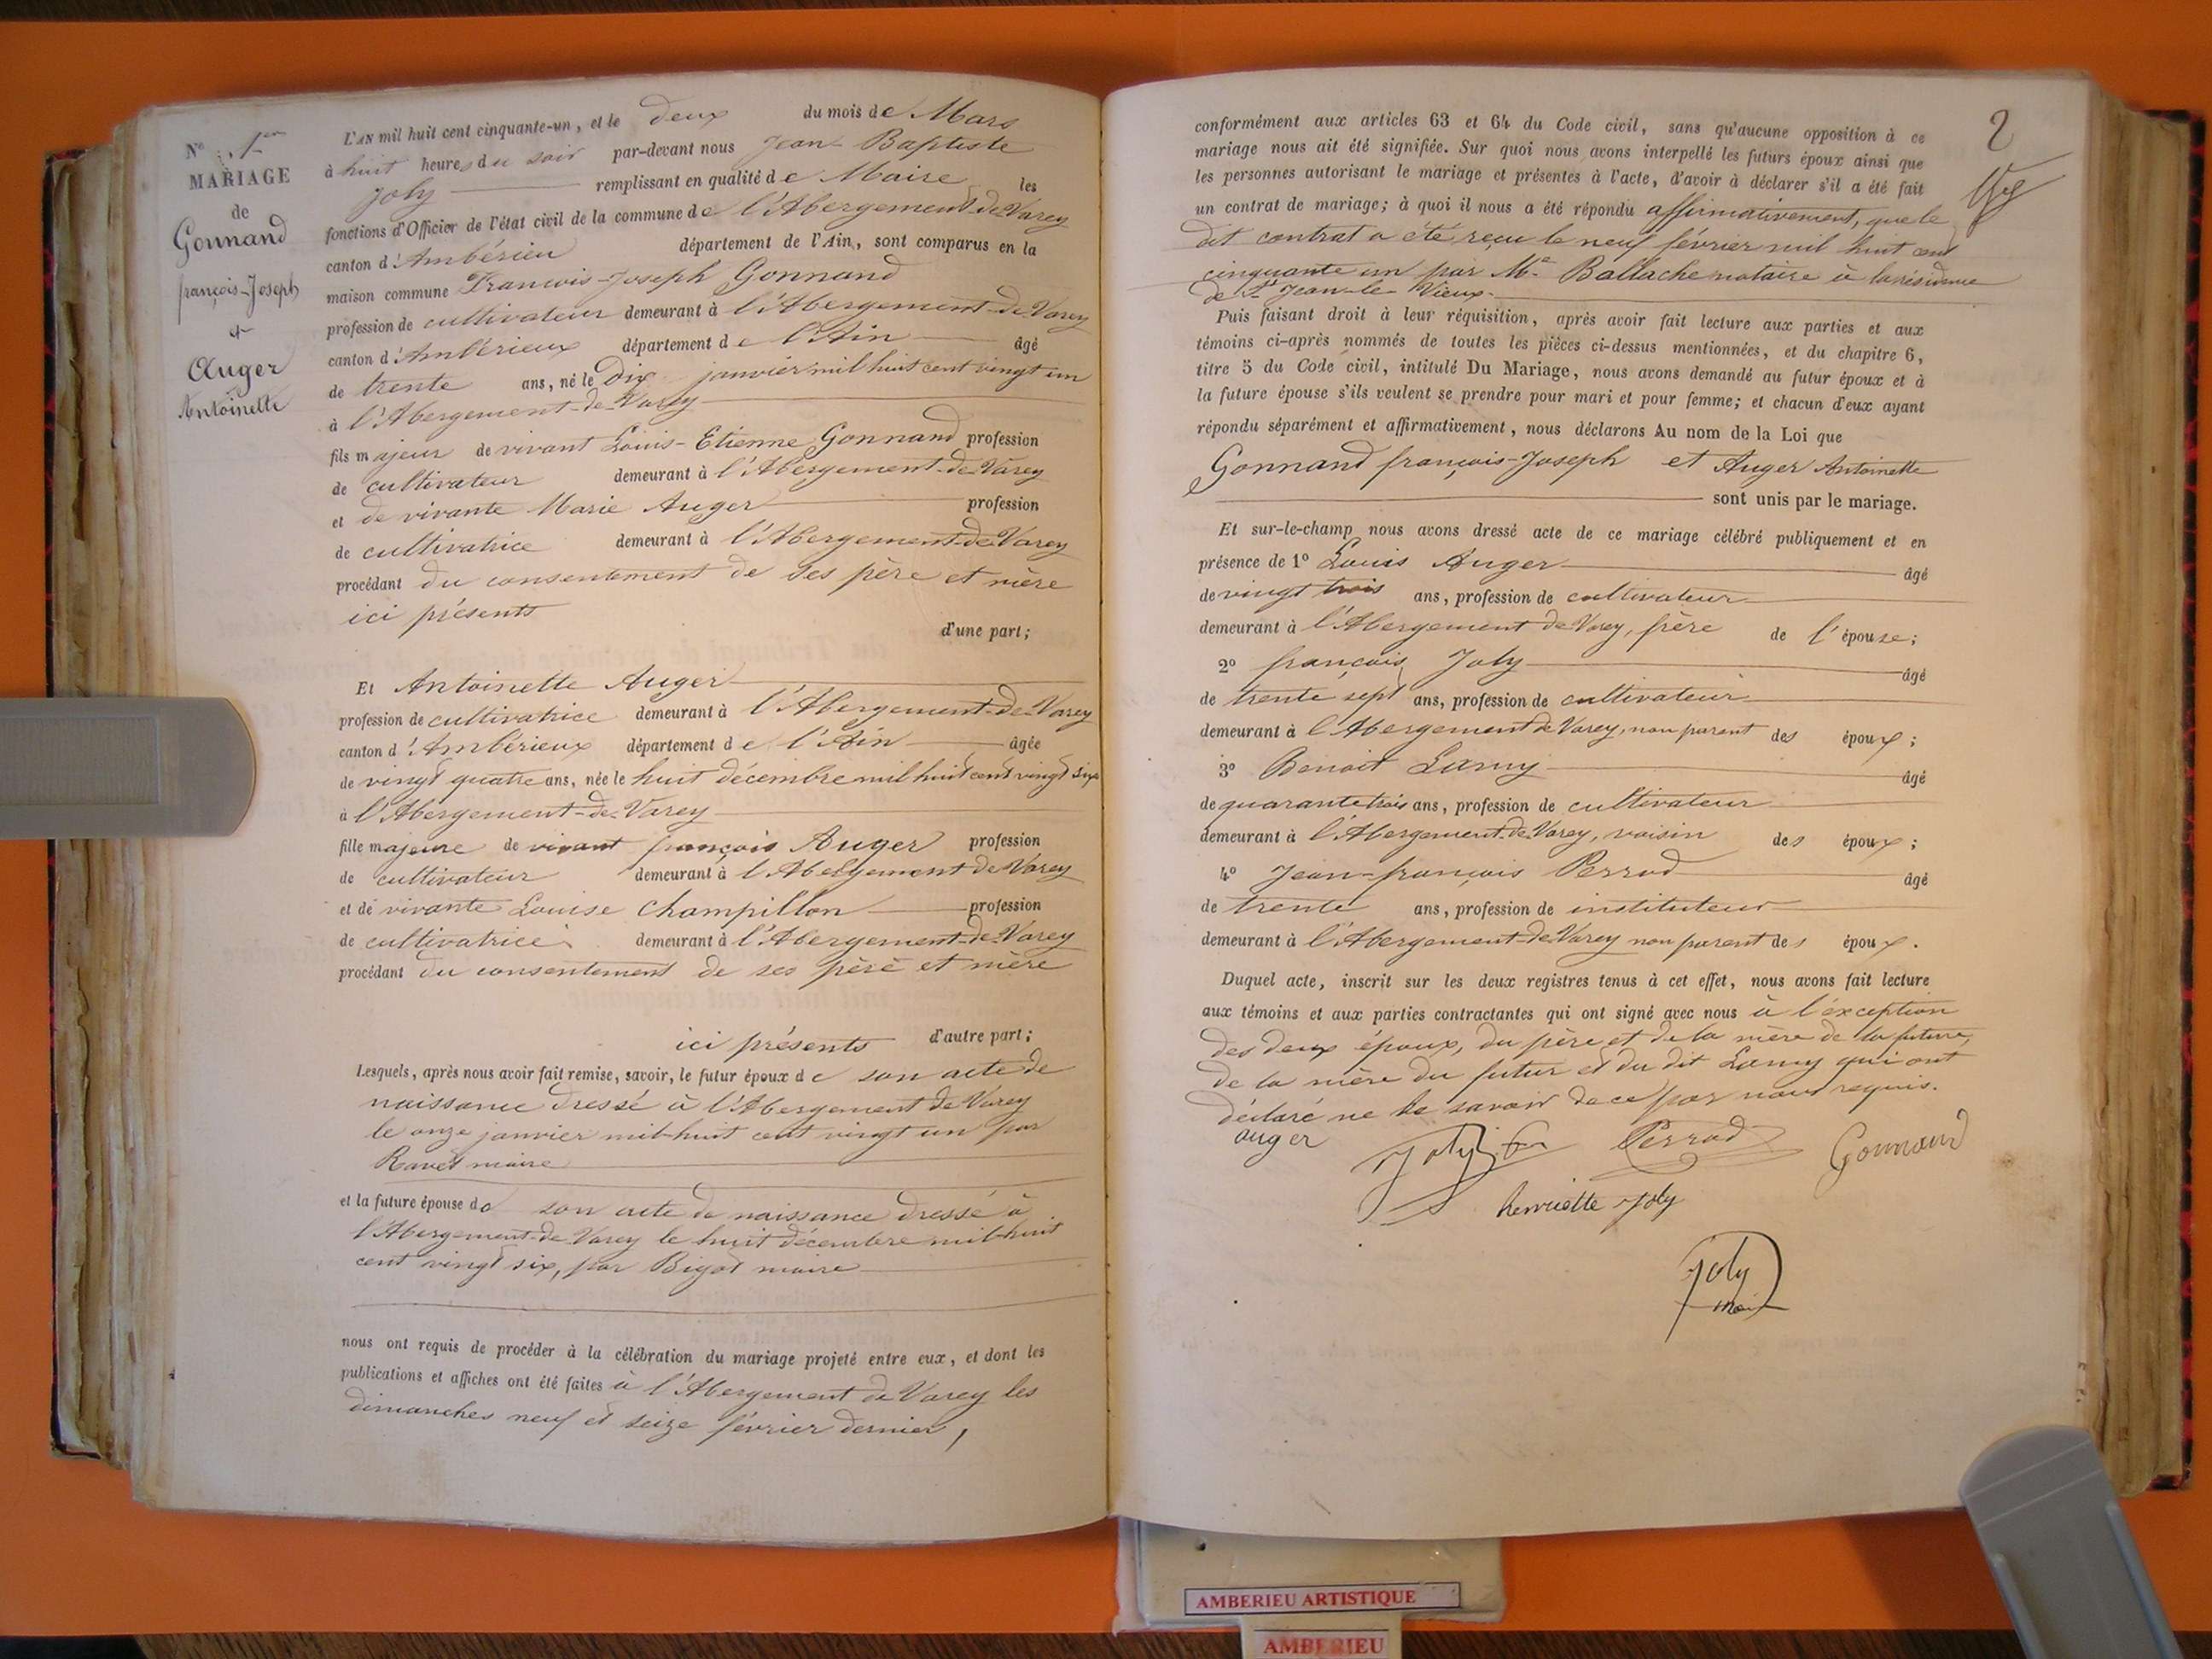 N° 1er
MARIAGE
de
Gonnand
françois-Joseph
et
Auger
Antoinette
L'AN mil huit cent cinquante-un, et le deux du mois de Mars
à huit heures du soir par-devant nous Jean-Baptiste
Joly remplissant en qualité de Maire les
fonctions d'Officier de l'état civil de la commune de l'Abergement-de-Varey
canton d'Ambérieu département de l'Ain, sont comparus en la
maison commune François-Joseph Gonnand
profession de cultivateur demeurant à l'Abergement-de-Varey
canton d'Ambérieux département de l'Ain âgé
de trente ans, né le Dix janvier mil huit cent vingt un
à l'Abergement-de-Varey
fils majeur de vivant Louis-Etienne Gonnand profession
de cultivateur demeurant à l'Abergement-de-Varey
et de vivante Marie Auger profession
de cultivatrice demeurant à l'Abergement-de-Varey
procédant du consentement de ses père et mère
ici présents
d'une part;
Et Antoinette Auger
profession de cultivatrice demeurant à l'Abergement-de-Varey
canton d'Ambérieux département de l'Ain âgée
de vingt quatre ans, née le huit décembre mil huit cent vingt six
à l'Abergement-de-Varey
fille majeure de vivant françois Auger profession
de cultivateur demeurant à l'Abergement de Varey
et de vivante Louise Champillon profession
de cultivatrice demeurant à l'Abergement-de-Varey
procédant du consentement de ses père et mère
ici présents d'autre part;
Lesquels, après nous avoir fait remise, savoir, le futur époux de son acte de
naissance dressé à l'Abergement de Varey
le onze janvier mil-huit cent vingt un par
Ravet maire
et la future épouse de son acte de naissance dressé à
l'Abergement-de-Varey le huit décembre mil-huit
cent vingt six, par Bigot maire
nous ont requis de procéder à la célébration du mariage projeté entre eux, et dont les
publications et affiches ont été faites à l'Abergement de Varey les
dimanches neuf et seize février dernier,
2
conformément aux articles 63 et 64 du Code civil, sans qu'aucune opposition à ce
mariage nous ait été signifiée. Sur quoi nous avons interpellé les futurs époux ainsi que
les personnes autorisant le mariage et présentes à l'acte, d'avoir à déclarer s'il a été fait
un contrat de mariage; à quoi il nous a été répondu affirmativement, que le
dit contrat a été reçu le neuf février mil huit cent
cinquante un par Me Ballache notaire à la résidence
de St Jean-le-Vieux.
Puis faisant droit à leur réquisition, après avoir fait lecture aux parties et aux
témoins ci-après nommés de toutes les pièces ci-dessus mentionnées, et du chapitre 6,
titre 5 du Code civil, intitulé Du Mariage, nous avons demandé au futur époux et à
la future épouse s'ils veulent se prendre pour mari et pour femme; et chacun d'eux ayant
répondu séparément et affirmativement, nous déclarons Au nom de la Loi que
Gonnand françois-Joseph et Auger Antoinette
sont unis par le mariage.
Et sur-le-champ nous avons dressé acte de ce mariage célébré publiquement et en
présence de 1° Louis Auger âgé
de vingt trois ans, profession de cultivateur
demeurant à l'Abergement de Varey, frère de l'épouse;
2° françois Joly âgé
de trente sept ans, profession de cultivateur
demeurant à l'Abergement de Varey, non parent des époux;
3° Benoit Lamy âgé
de quarante trois ans, profession de cultivateur
demeurant à l'Abergement-de-Varey, voisin des époux;
4° Jean-françois Perrod âgé
de trente ans, profession de instituteur
demeurant à l'Abergement-de-Varey non parent des époux.
Duquel acte, inscrit sur les deux registres tenus à cet effet, nous avons fait lecture
aux témoins et aux parties contractantes qui ont signé avec nous à l'exception
des deux époux, du père et de la mère de la future,
de la mère du futur et du dit Lamy qui ont
déclaré ne le savoir de ce par nous requis.
auger Joly fr Perrod Gonnand
henriette Joly
Joly
AMBERIEU ARTISTIQUE
AMBERIEU